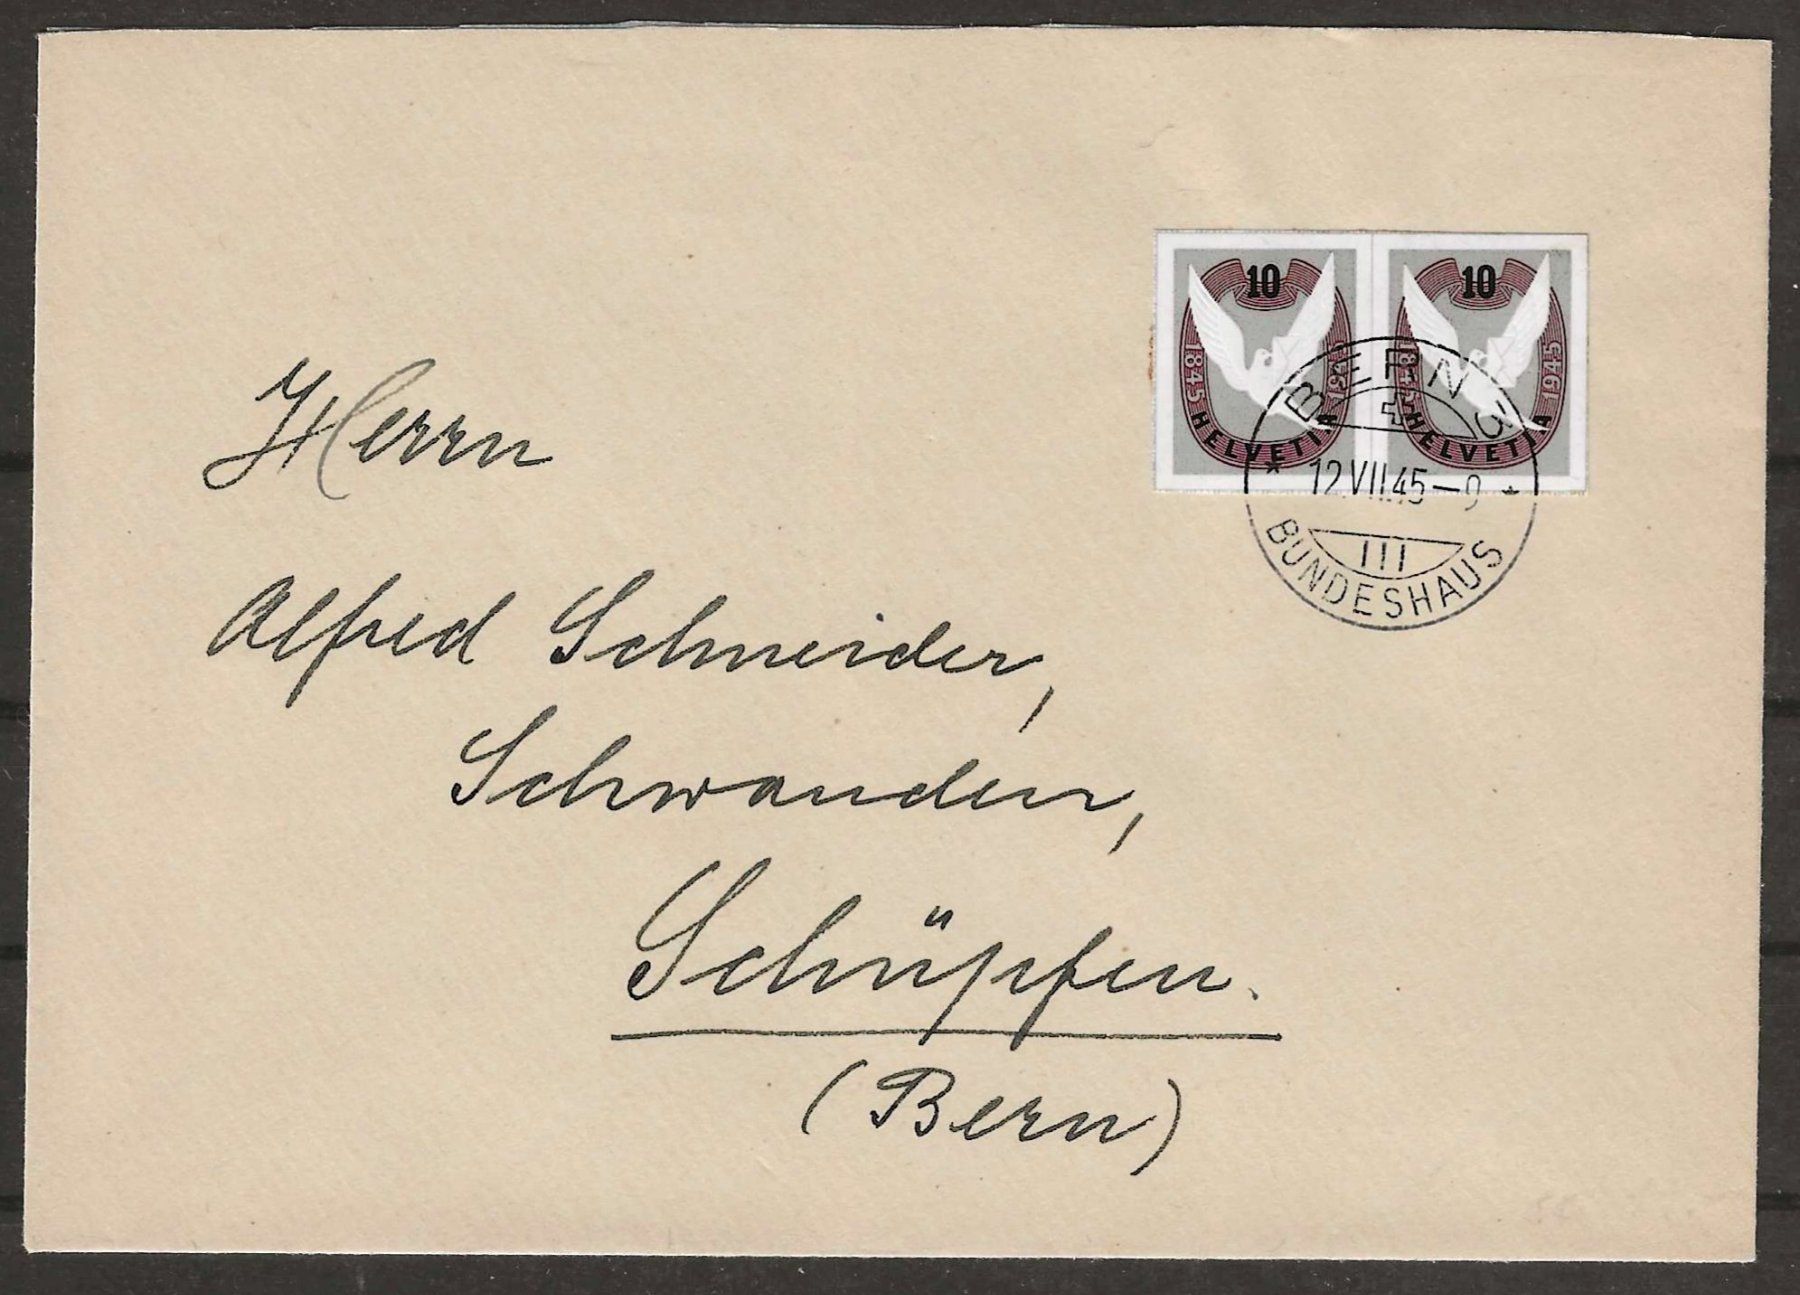 10 10
1845 1945 1845 1945
HELVETIA HELVETIA
BERN 3
12.VII.45–9
III
BUNDESHAUS
Herrn
Alfred Schneider,
Schwanden,
Schüpfen.
(Bern)